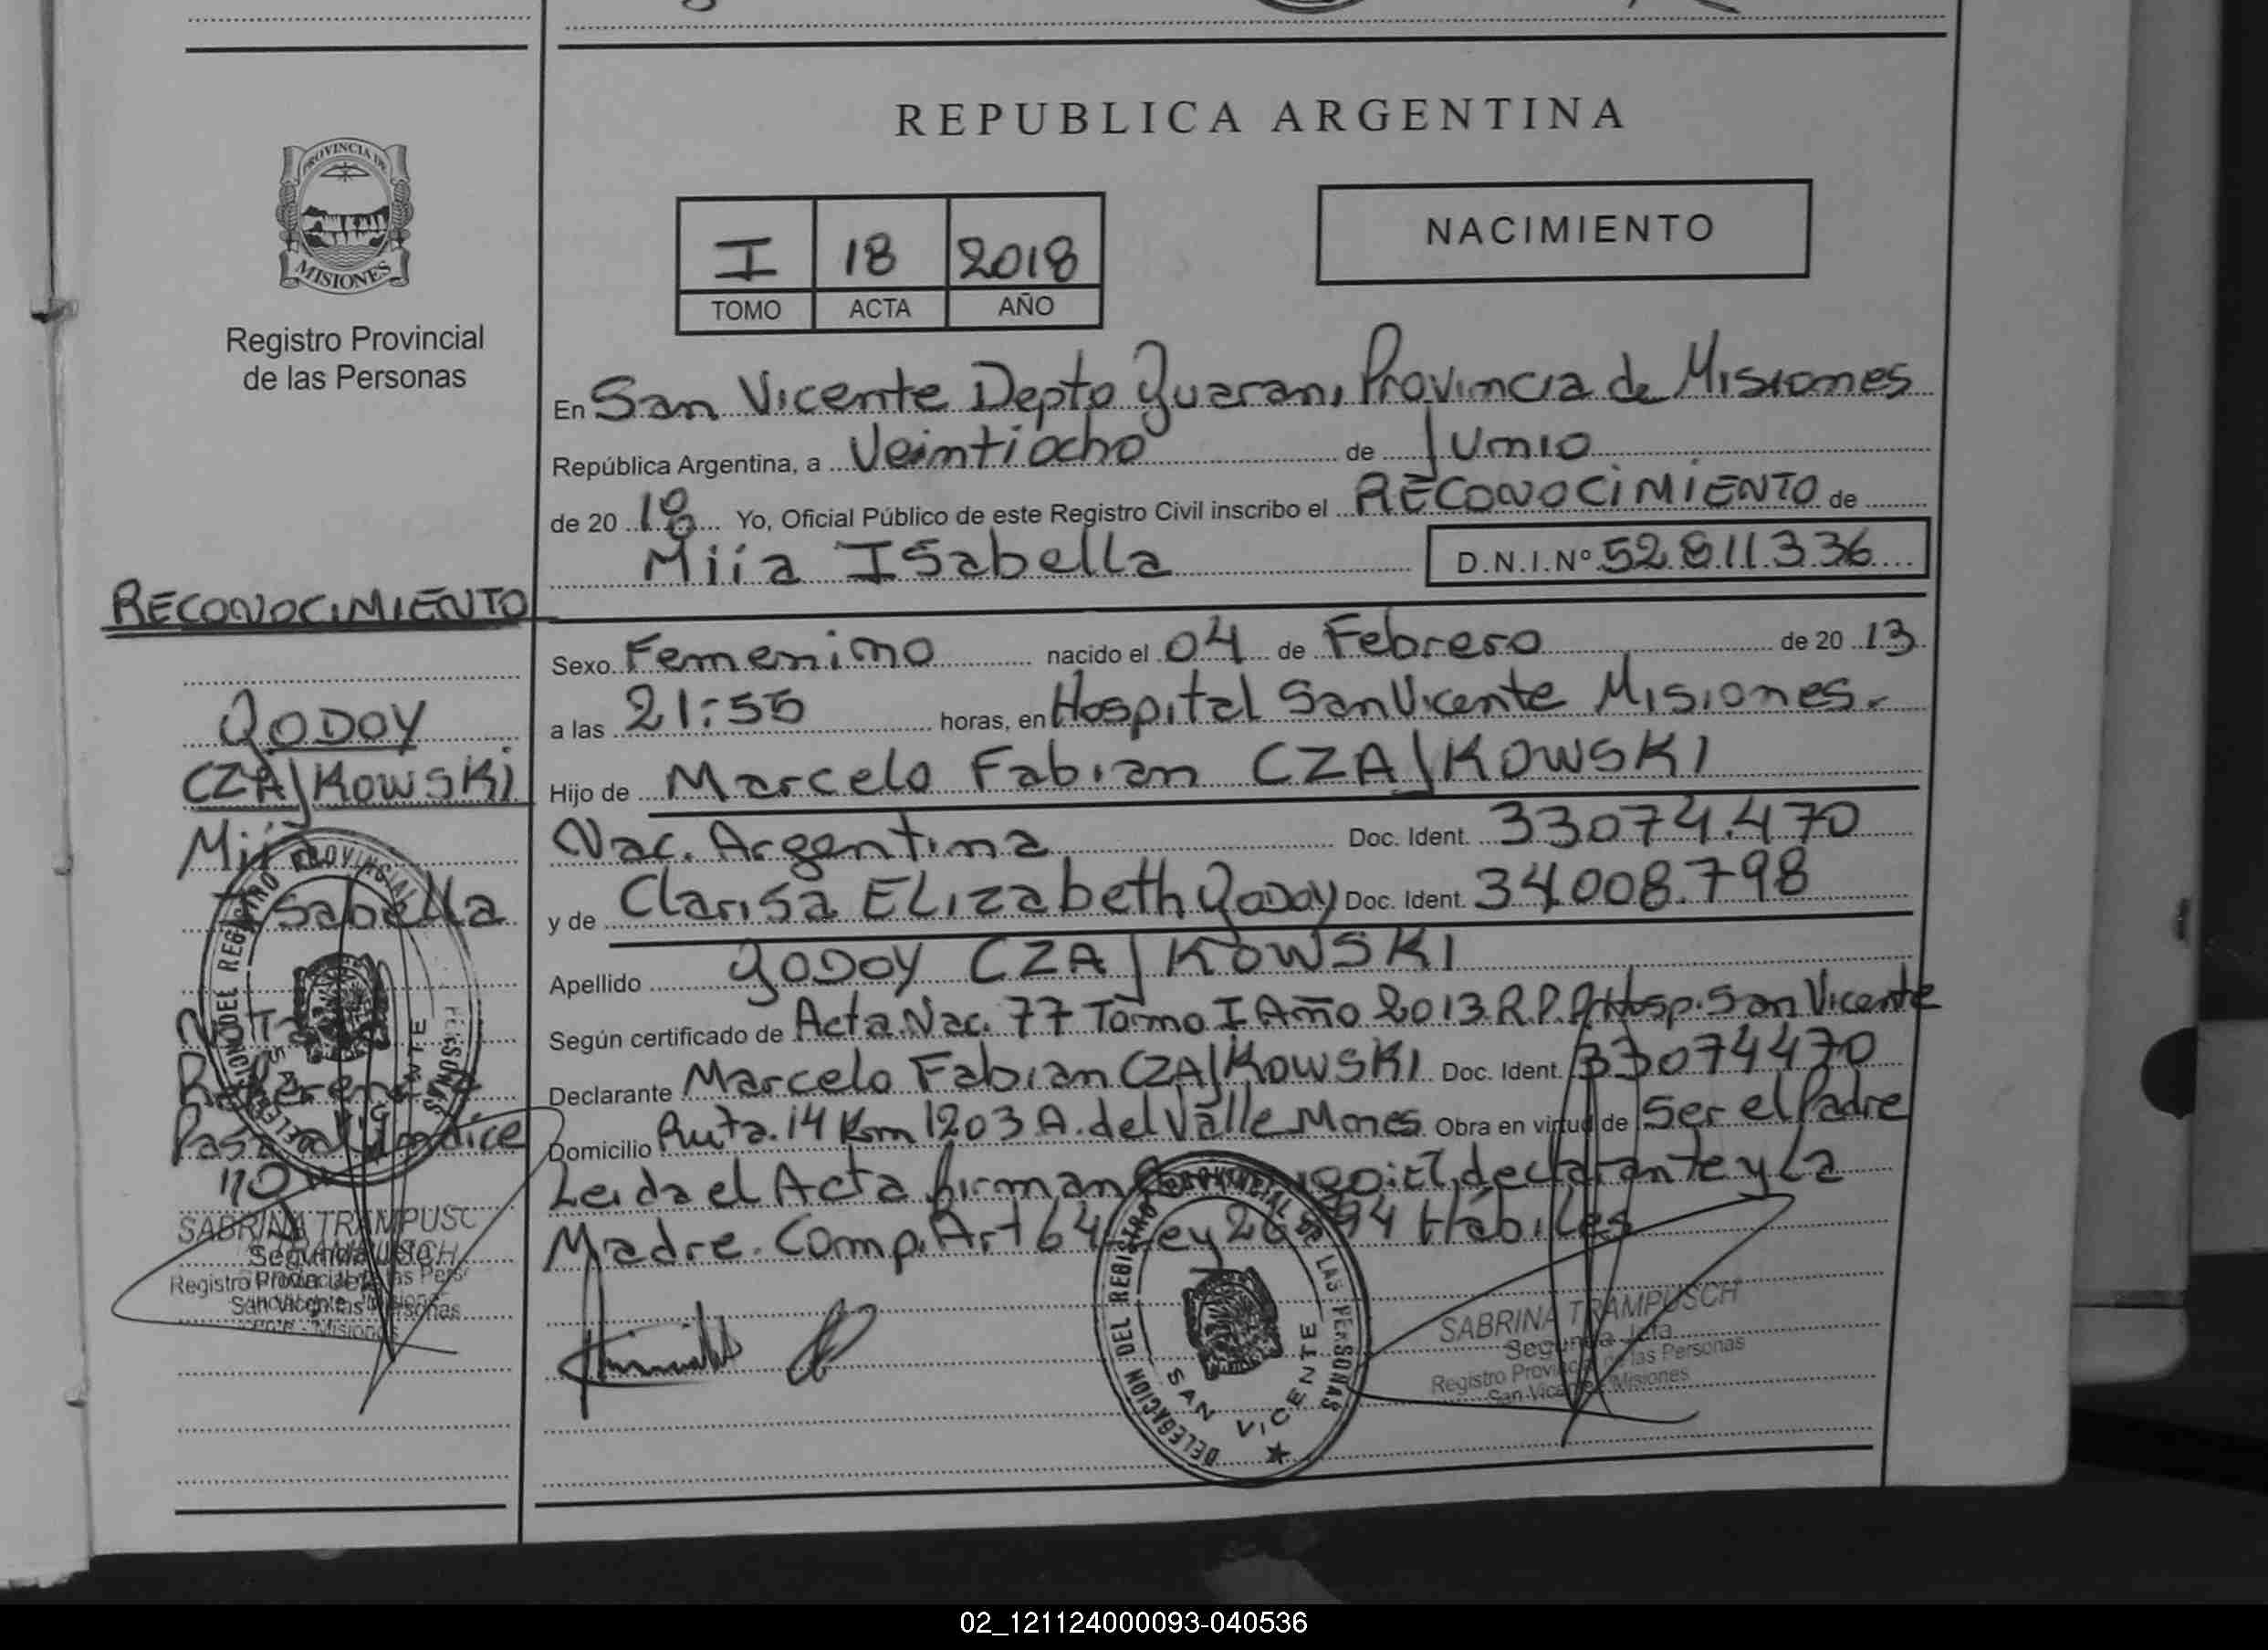 REPUBLICA ARGENTINA
PROVINCIA DE
MISIONES
Registro Provincial
de las Personas
I 18 2018
TOMO ACTA AÑO
NACIMIENTO
En San Vicente Depto Guarani Provincia de Misiones
República Argentina, a Veintiocho de Junio
de 20 18 Yo, Oficial Público de este Registro Civil inscribo el RECONOCIMIENTO de
Miia Isabella D.N.I.Nº 52.811.336
Sexo Femenino nacido el 04 de Febrero de 20 13
a las 21:55 horas, en Hospital San Vicente Misiones.
Hijo de Marcelo Fabian CZAJKOWSKI
Nac. Argentina Doc. Ident. 33074.470
y de Clarisa Elizabeth Godoy Doc. Ident. 34.008.798
Apellido GODOY CZAJKOWSKI
Según certificado de Acta Nac. 77 Tomo I Año 2013 R.P.P. Hosp. San Vicente
Declarante Marcelo Fabian CZAJKOWSKI Doc. Ident. 33074470
Domicilio Ruta 14 Km 1203 A. del Valle Mnes Obra en virtud de Ser el Padre
Leida el Acta firman declarante y La
Madre. Comp. Art 64 Ley 26994 Hábiles
RECONOCIMIENTO
GODOY
CZAJKOWSKI
Miia
Isabella
Nota
Referencia
Pasa al Indice
110
SABRINA TRAMPUSCH
Segunda Jefa
Registro Provincial de las Personas
San Vicente - Misiones
DELEGACION DEL REGISTRO PROVINCIAL DE LAS PERSONAS
SAN VICENTE
SABRINA TRAMPUSCH
Segunda Jefa
Registro Provincial de las Personas
San Vicente - Misiones
DELEGACION DEL REGISTRO PROVINCIAL DE LAS PERSONAS
SAN VICENTE
02_121124000093-040536